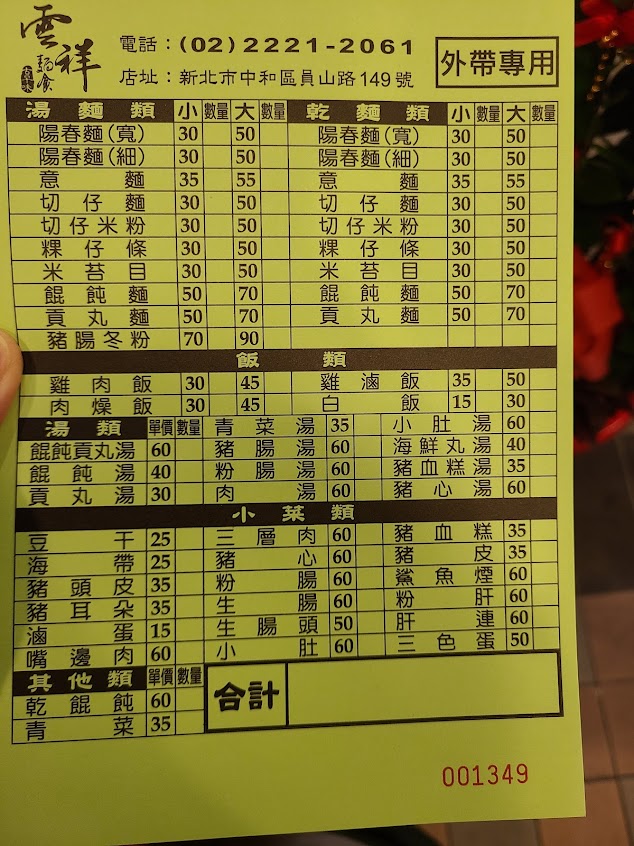 雲祥
麵食
電話：(02)2221-2061
店址：新北市中和區員山路149號
外帶專用
湯麵類 小 數量 大 數量 乾麵類 小 數量 大 數量
陽春麵(寬) 30 50 陽春麵(寬) 30 50
陽春麵(細) 30 50 陽春麵(細) 30 50
意麵 35 55 意麵 35 55
切仔麵 30 50 切仔麵 30 50
切仔米粉 30 50 切仔米粉 30 50
粿仔條 30 50 粿仔條 30 50
米苔目 30 50 米苔目 30 50
餛飩麵 50 70 餛飩麵 50 70
貢丸麵 50 70 貢丸麵 50 70
豬腸冬粉 70 90
飯類
雞肉飯 30 45 雞滷飯 35 50
肉燥飯 30 45 白飯 15 30
湯類 單價 數量 青菜湯 35 小肚湯 60
餛飩貢丸湯 60 豬腸湯 60 海鮮丸湯 40
餛飩湯 40 粉腸湯 60 豬血糕湯 35
貢丸湯 30 肉湯 60 豬心湯 60
小菜類
豆干 25 三層肉 60 豬血糕 35
海帶 25 豬心 60 豬皮 35
豬頭皮 35 粉腸 60 鯊魚煙 60
豬耳朵 35 生腸 60 粉肝 60
滷蛋 15 生腸頭 50 肝連 60
嘴邊肉 60 小肚 60 三色蛋 50
其他類 單價 數量 合計
乾餛飩 60
青菜 35
001349